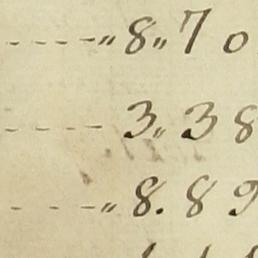 ----"8"70
----3"38
- ---"8.89